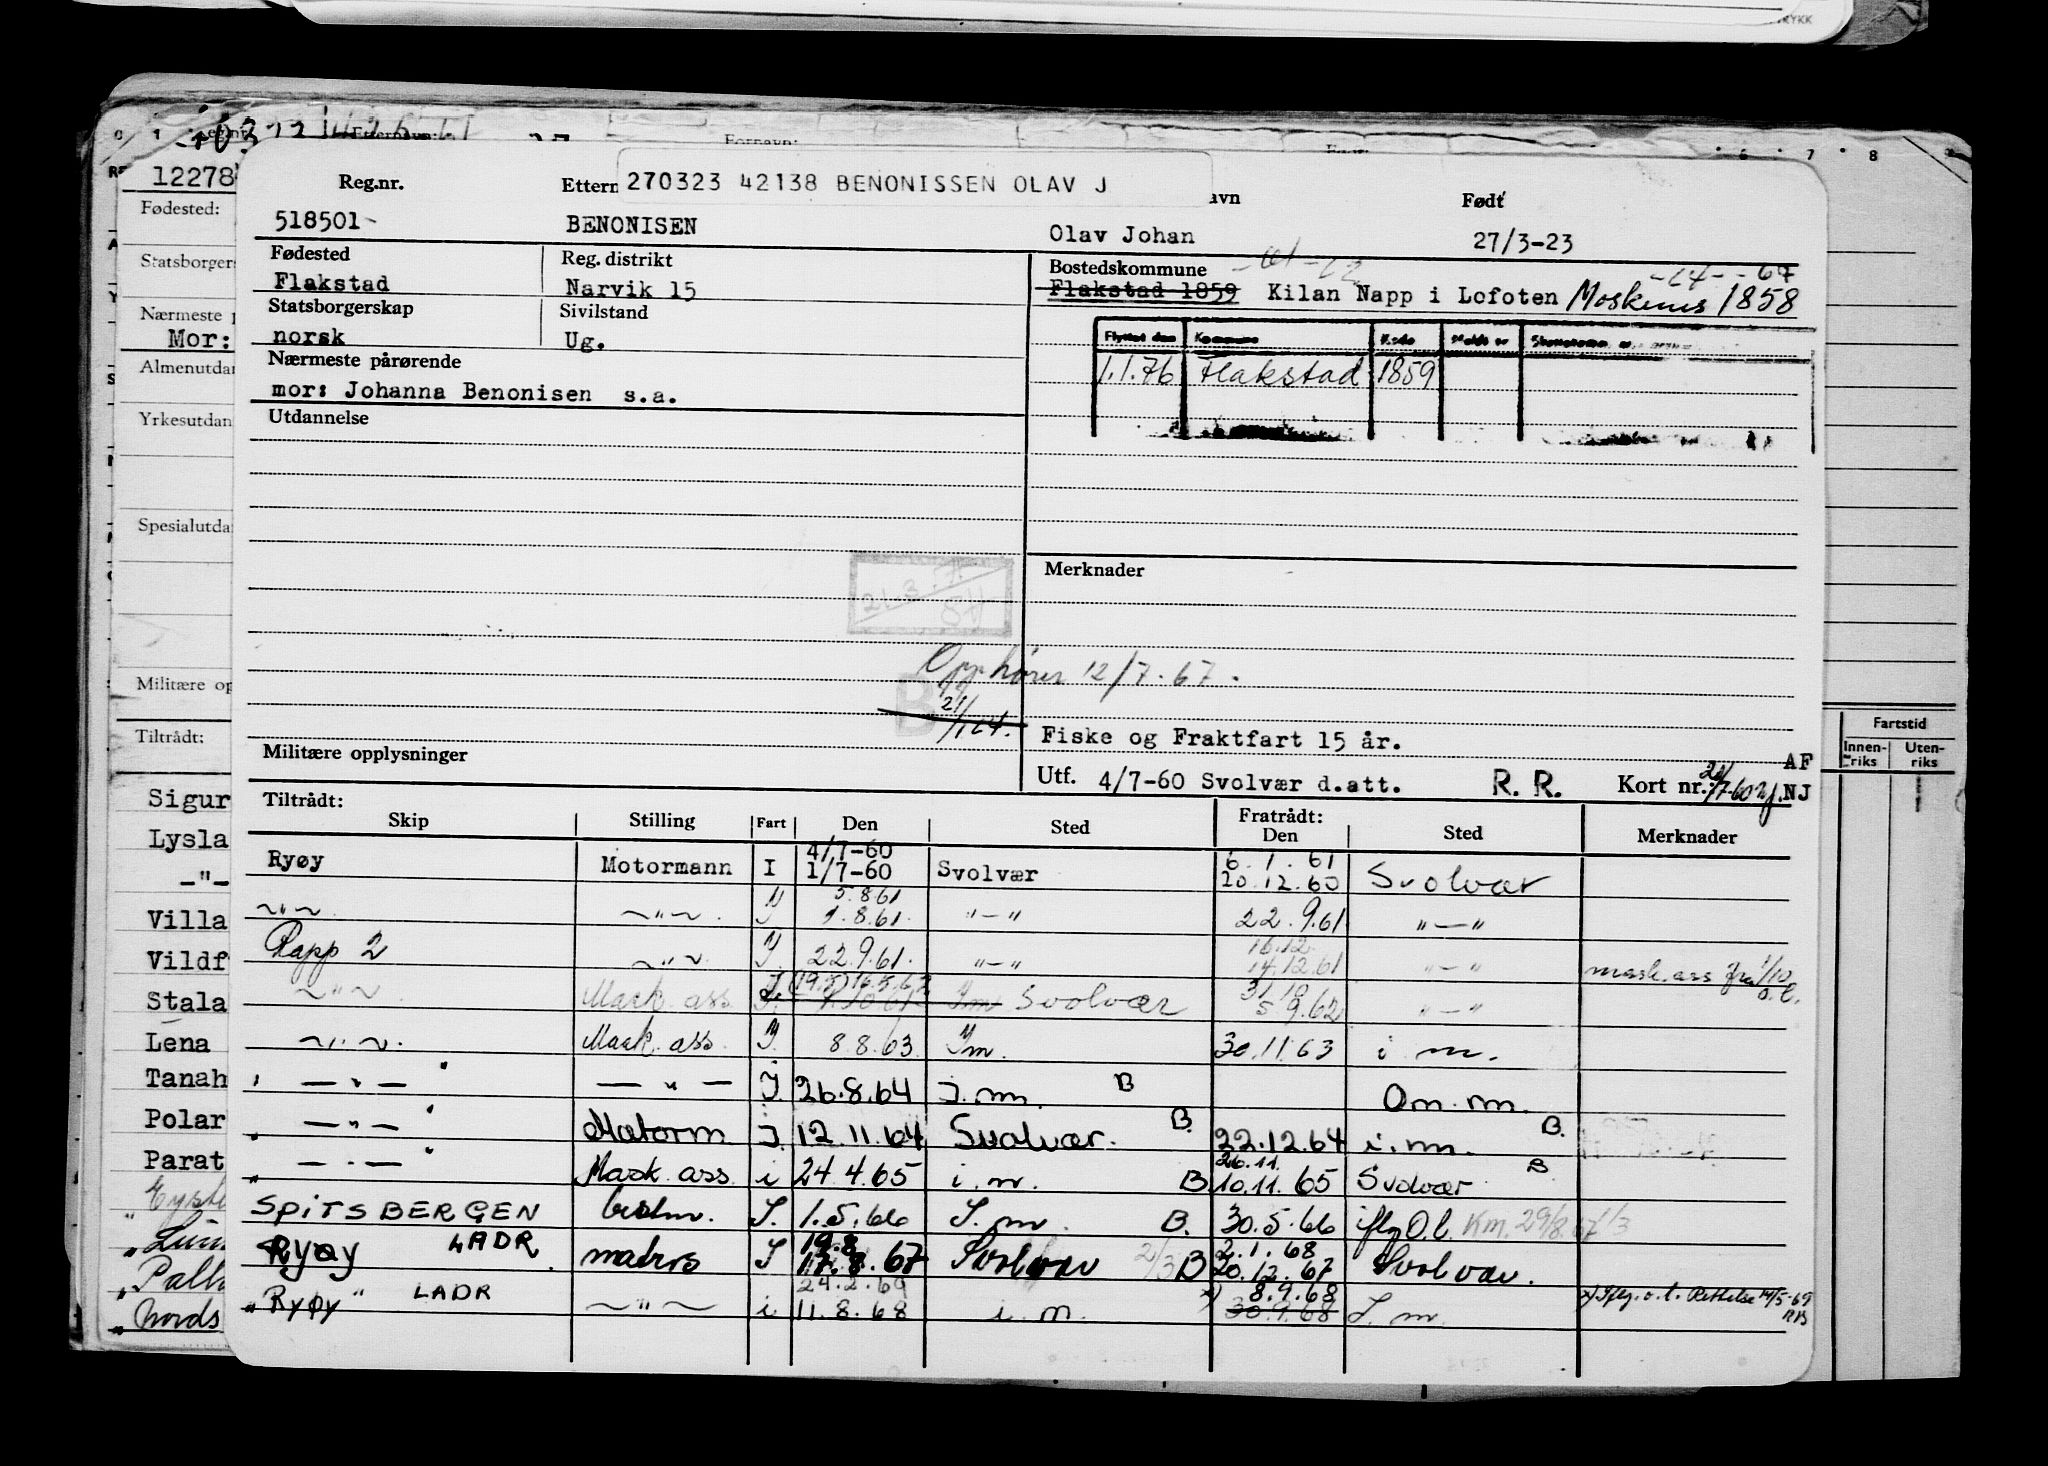 RYKK
Reg.nr. Ettern 270323 42138 BENONISSEN OLAV J avn Født
518501 BENONISEN Olav Johan 27/3-23
Fødested Reg. distrikt Bostedskommune
Flakstad Narvik 15 Flakstad 1859 Kilan Napp i Lofoten Moskenes 1858
Statsborgerskap Sivilstand
norsk Ug.
Flyttet den Kommune Kode
1.1.76 Flakstad 1859
Nærmeste pårørende
mor: Johanna Benonisen s.a.
Utdannelse
Merknader
Opphører 12/7.67.
Fiske og Fraktfart 15 år.
Militære opplysninger
Utf. 4/7-60 Svolvær d.att. R. R. Kort nr. AF NJ
Tiltrådt: Fratrådt:
Skip Stilling Fart Den Sted Den Sted Merknader
Ryøy Motormann I 4/7-60 1/7-60 Svolvær 6.1.61 20.12.60 Svolvær
~"~ ~"~ I 5.8.61 1.8.61 "-" 22.9.61 "-"
Rapp 2 ~"~ I 22.9.61 "-" 16.12 14.12.61 "-" mask.ass fra 1/10 o.l.
~"~ Mask. ass I. Svolvær 31.10 5.9.62 "-"
~"~ Mask. ass. I. 8.8.63 I m. 30.11.63 i. m.
" — " — " — " — I 26.8.64 I. m. B Om. m.
" — " — " Motorm I. 12.11.64 Svolvær. B. 22.12.64 i. m. B.
" — " — " Mask. ass. i 24.4.65 i. m. B 26.11. 10.11.65 Svolvær B
SPITSBERGEN bestm. I. 1.5.66 I. m. B. 30.5.66 iflg O.l. Km. 29/8.67
RYØY LADR matros I 19.8 17.8.67 Svolvær 2/3 B 2.1.68 20.12.67 Svolvær.
"Ryøy" LADR ~"~ i 24.2.69 11.8.68 i. m. x) 8.9.68 30.9.68 I. m. x) Iflg. o.l. Rettelse 14/5-69
12278
Fødested:
Statsborgers
Nærmeste p
Mor:
Almenutdan
Yrkesutdan
Spesialutdan
Militære op
Tiltrådt:
Sigur
Lysla
-"-
Villa
Vildf
Stala
Lena
Tanah
Polar
Parat
Fornavn:
6 7 8
Fartstid
Innenriks Utenriks